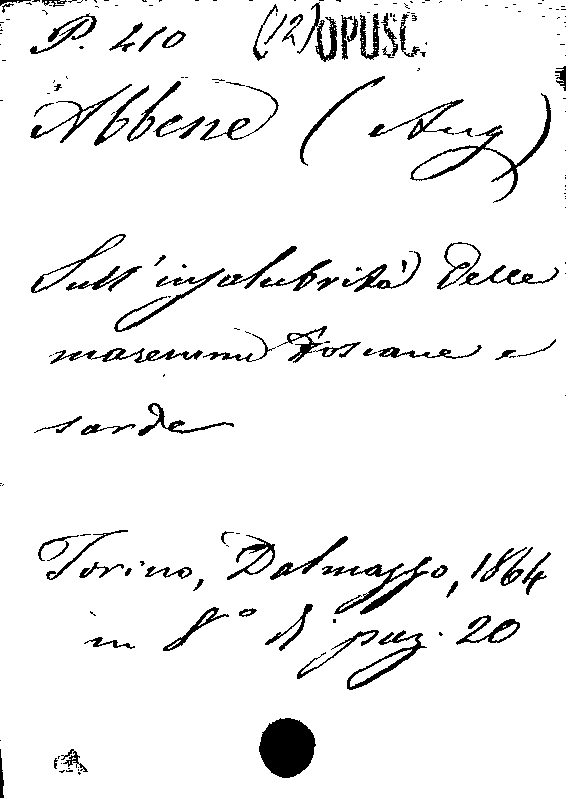 P. 410 (12) OPUSC.
Abbene (Aug)
Sull'insalubrità delle
maremme toscane e
sarde
Torino, Dalmasso, 1864
in 8° di pag. 20